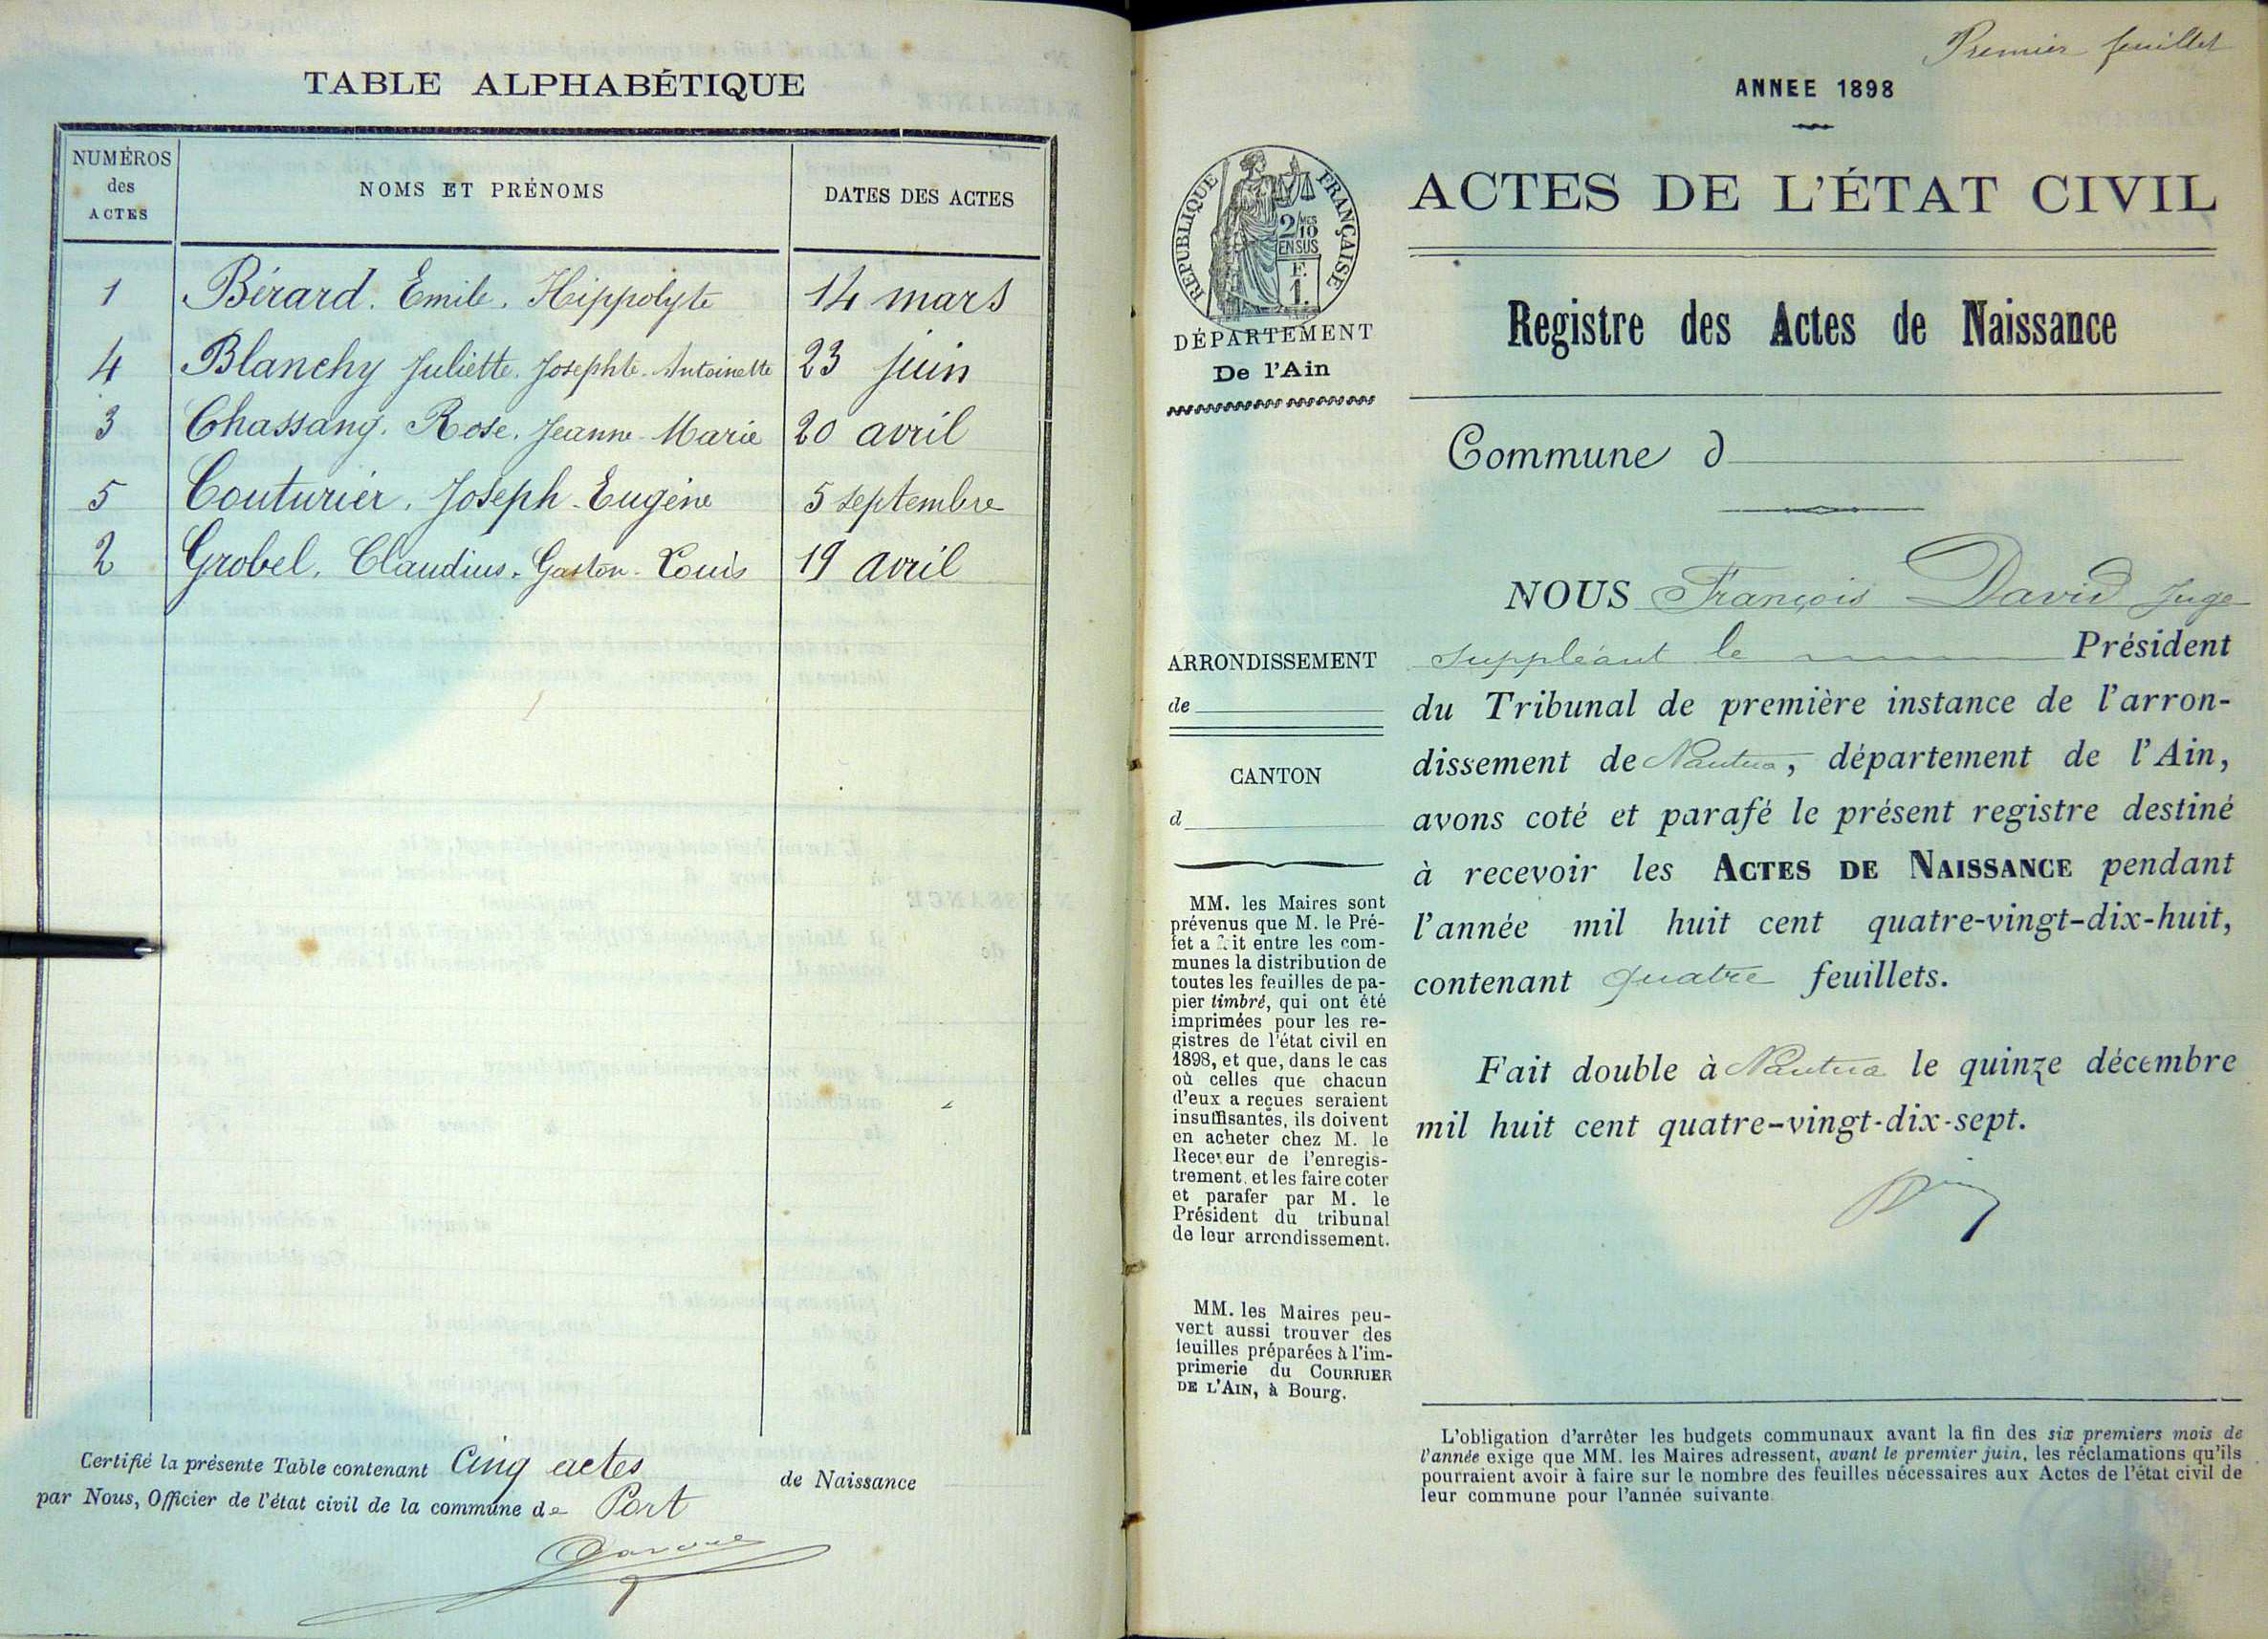 TABLE ALPHABÉTIQUE
NUMÉROS
des
ACTES
NOMS ET PRÉNOMS
DATES DES ACTES
1 Bérard. Emile. Hippolyte 14 mars
4 Blanchy Juliette. Josephte. Antoinette 23 juin
3 Chassang. Rose. Jeanne-Marie 20 avril
5 Couturier. Joseph-Eugène 5 septembre
2 Grobel. Claudius. Gaston-Louis 19 avril
Certifié la présente Table contenant Cinq actes de Naissance
par Nous, Officier de l'état civil de la commune de Port
Premier feuillet
ANNEE 1898
RÉPUBLIQUE FRANÇAISE
2/10 MES
EN SUS
F.
1.
DÉPARTEMENT
De l'Ain
ACTES DE L'ÉTAT CIVIL
Registre des Actes de Naissance
Commune d
ARRONDISSEMENT
de
CANTON
d
MM. les Maires sont
prévenus que M. le Pré-
fet a fait entre les com-
munes la distribution de
toutes les feuilles de pa-
pier timbré, qui ont été
imprimées pour les re-
gistres de l'état civil en
1898, et que, dans le cas
où celles que chacun
d'eux a reçues seraient
insuffisantes, ils doivent
en acheter chez M. le
Receveur de l'enregis-
trement, et les faire coter
et parafer par M. le
Président du tribunal
de leur arrondissement.
MM. les Maires peu-
vent aussi trouver des
feuilles préparées à l'im-
primerie du COURRIER
DE L'AIN, à Bourg.
NOUS François David Juge
suppléant le Président
du Tribunal de première instance de l'arron-
dissement de Nantua, département de l'Ain,
avons coté et parafé le présent registre destiné
à recevoir les ACTES DE NAISSANCE pendant
l'année mil huit cent quatre-vingt-dix-huit,
contenant quatre feuillets.
Fait double à Nantua le quinze décembre
mil huit cent quatre-vingt-dix-sept.
L'obligation d'arrêter les budgets communaux avant la fin des six premiers mois de
l'année exige que MM. les Maires adressent, avant le premier juin, les réclamations qu'ils
pourraient avoir à faire sur le nombre des feuilles nécessaires aux Actes de l'état civil de
leur commune pour l'année suivante.